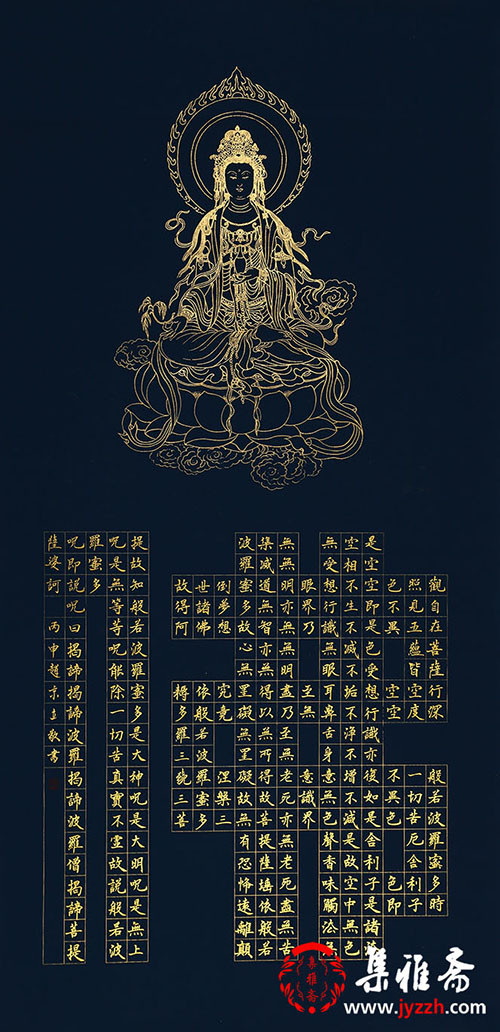 觀自在菩薩行深般若波羅蜜多時
照見五蘊皆空度一切苦厄舍利子
色不異空空不異色色即
是空空即是色受想行識亦復如是舍利子是諸法
空相不生不滅不垢不淨不增不減是故空中無色
無受想行識無眼耳鼻舌身意無色聲香味觸法無
眼界乃至無意識界
無無明亦無無明盡乃至無老死亦無老死盡無苦
集滅道無智亦無得以無所得故菩提薩埵依般若
波羅蜜多故心無罣礙無罣礙故無有恐怖遠離顛
倒夢想究竟涅槃三
世諸佛依般若波羅蜜多
故得阿耨多羅三藐三菩
提故知般若波羅蜜多是大神呪是大明呪是無上
呪是無等等呪能除一切苦真實不虛故說般若波
羅蜜多
呪即說呪曰揭諦揭諦波羅揭諦波羅僧揭諦菩提
薩婆訶 丙申趙京立敬書
集雅斋
www.jyzzh.com